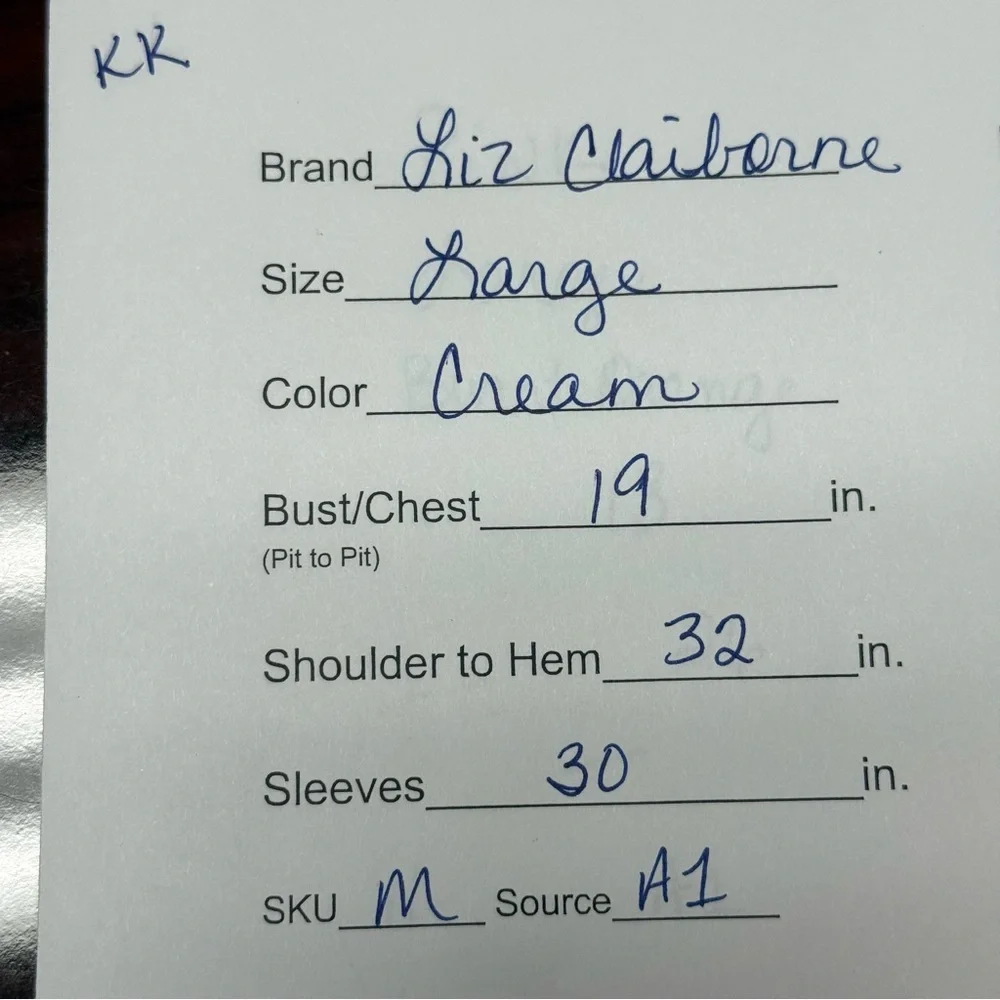 KK
Brand Liz Claiborne
Size Large
Color Cream
Bust/Chest 19 in.
(Pit to Pit)
Shoulder to Hem 32 in.
Sleeves 30 in.
SKU M Source A1